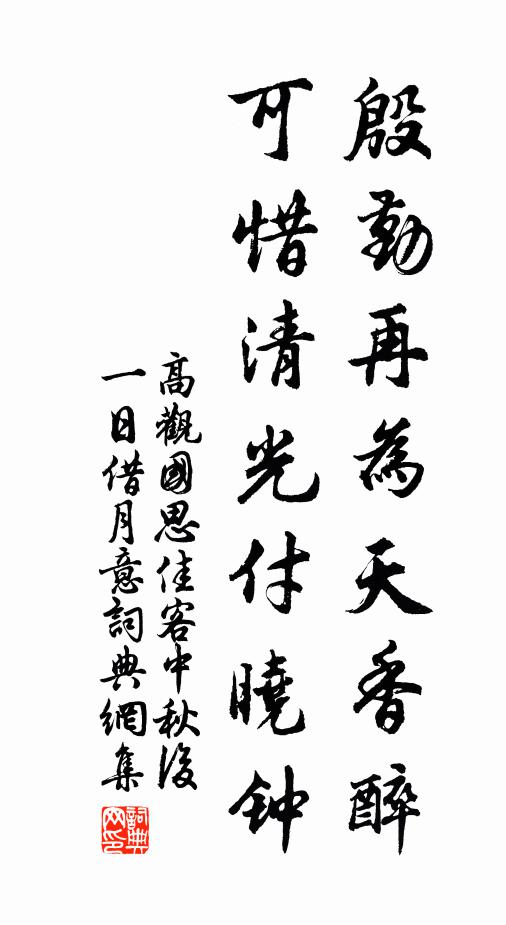 殷勤再為天香醉
可惜清光付曉钟
高觀國思佳客中秋後
一日借月意詞典網集
詞典网印